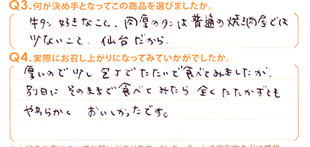 Q3.何が決め手となってこの商品を選びましたか。
牛タン好きなこと、肉厚のタンは普通の焼き肉屋では
少ないこと、仙台だから。
Q4.実際にお召し上がりになってみていかがでしたか。
厚いので少し包丁でたたいて食べてみましたが、
別日にそのままで食べてみたら全くたたかずとも
やわらかく おいしかったです。